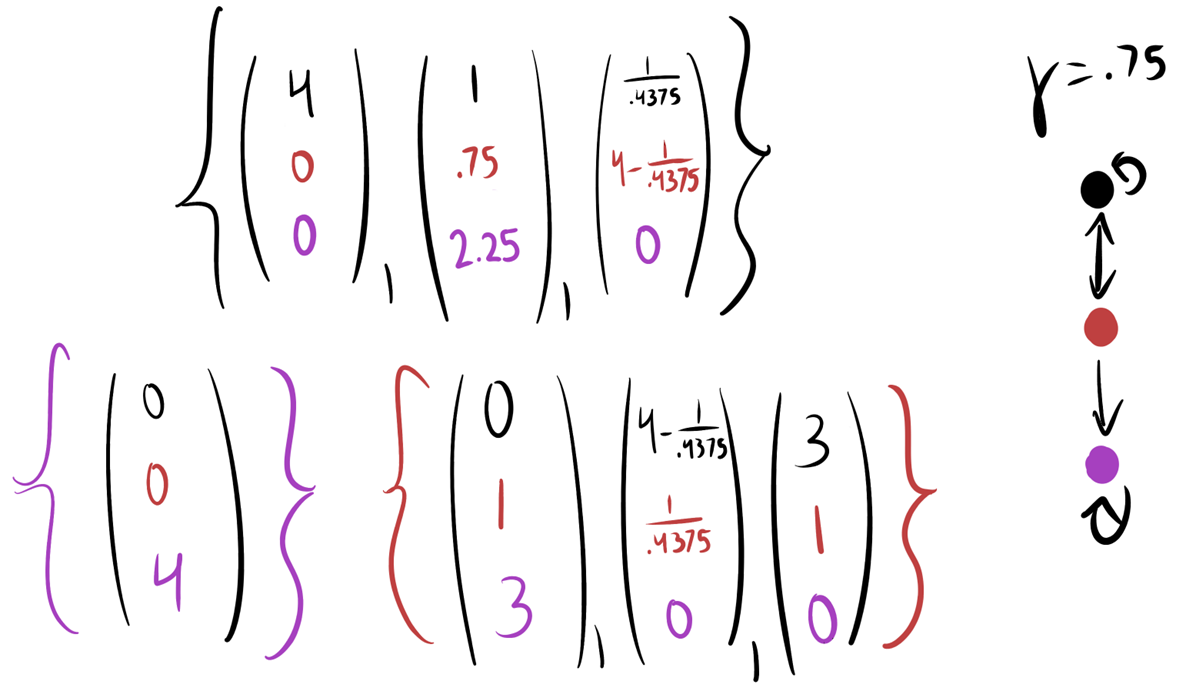 { ( 4 0 0 ), ( 1 .75 2.25 ), ( 1/.4375 4-1/.4375 0 ) }
γ=.75
{ ( 0 0 4 ) }
{ ( 0 1 3 ), ( 4-1/.4375 1/.4375 0 ), ( 3 1 0 ) }